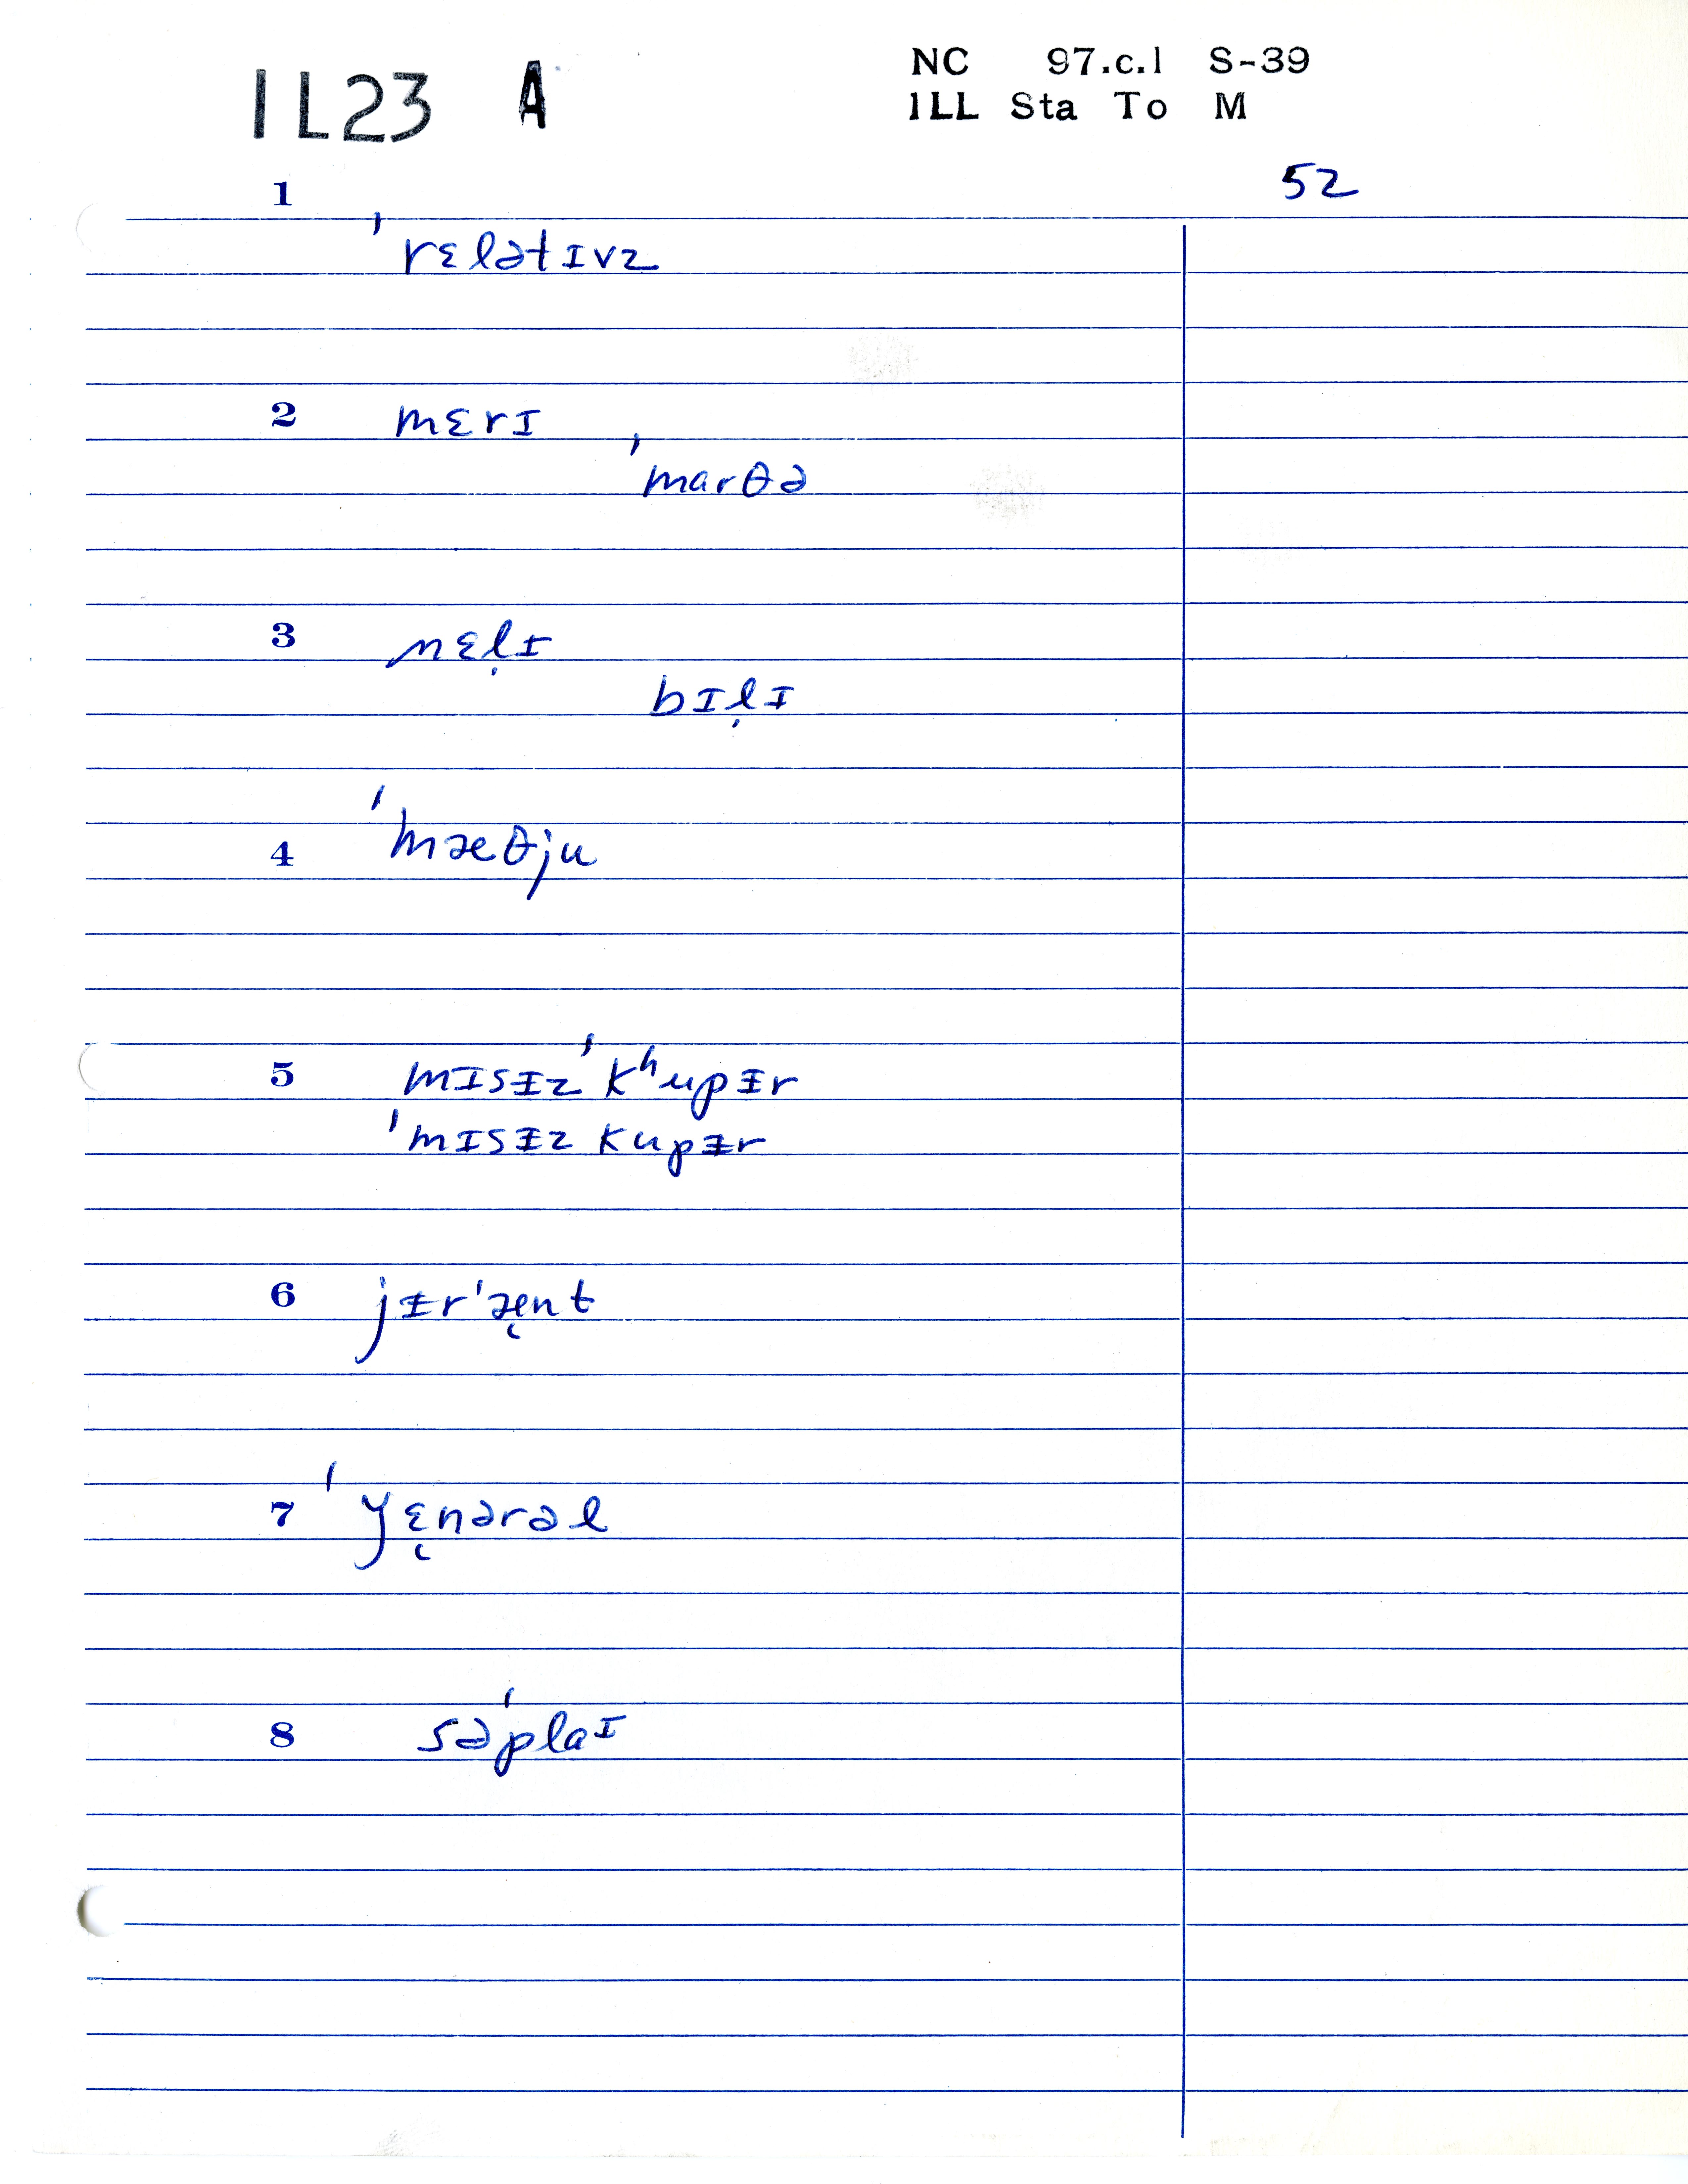 IL23 A
NC 97.c.1 S-39
ILL Sta To M
52
1 ˈrɛlətɪvz
2 mɛrɪ
ˈmarθə
3 nɛl̩ɪ
bɪl̩ɪ
4 ˈmæθju
5 mɪsᵻz ˈkʰupᵻr
ˈmɪsᵻz kupᵻr
6 jᵻrˈæ̨nt
7 ˈɏɛ̨nərəl
8 səˈplaɪ